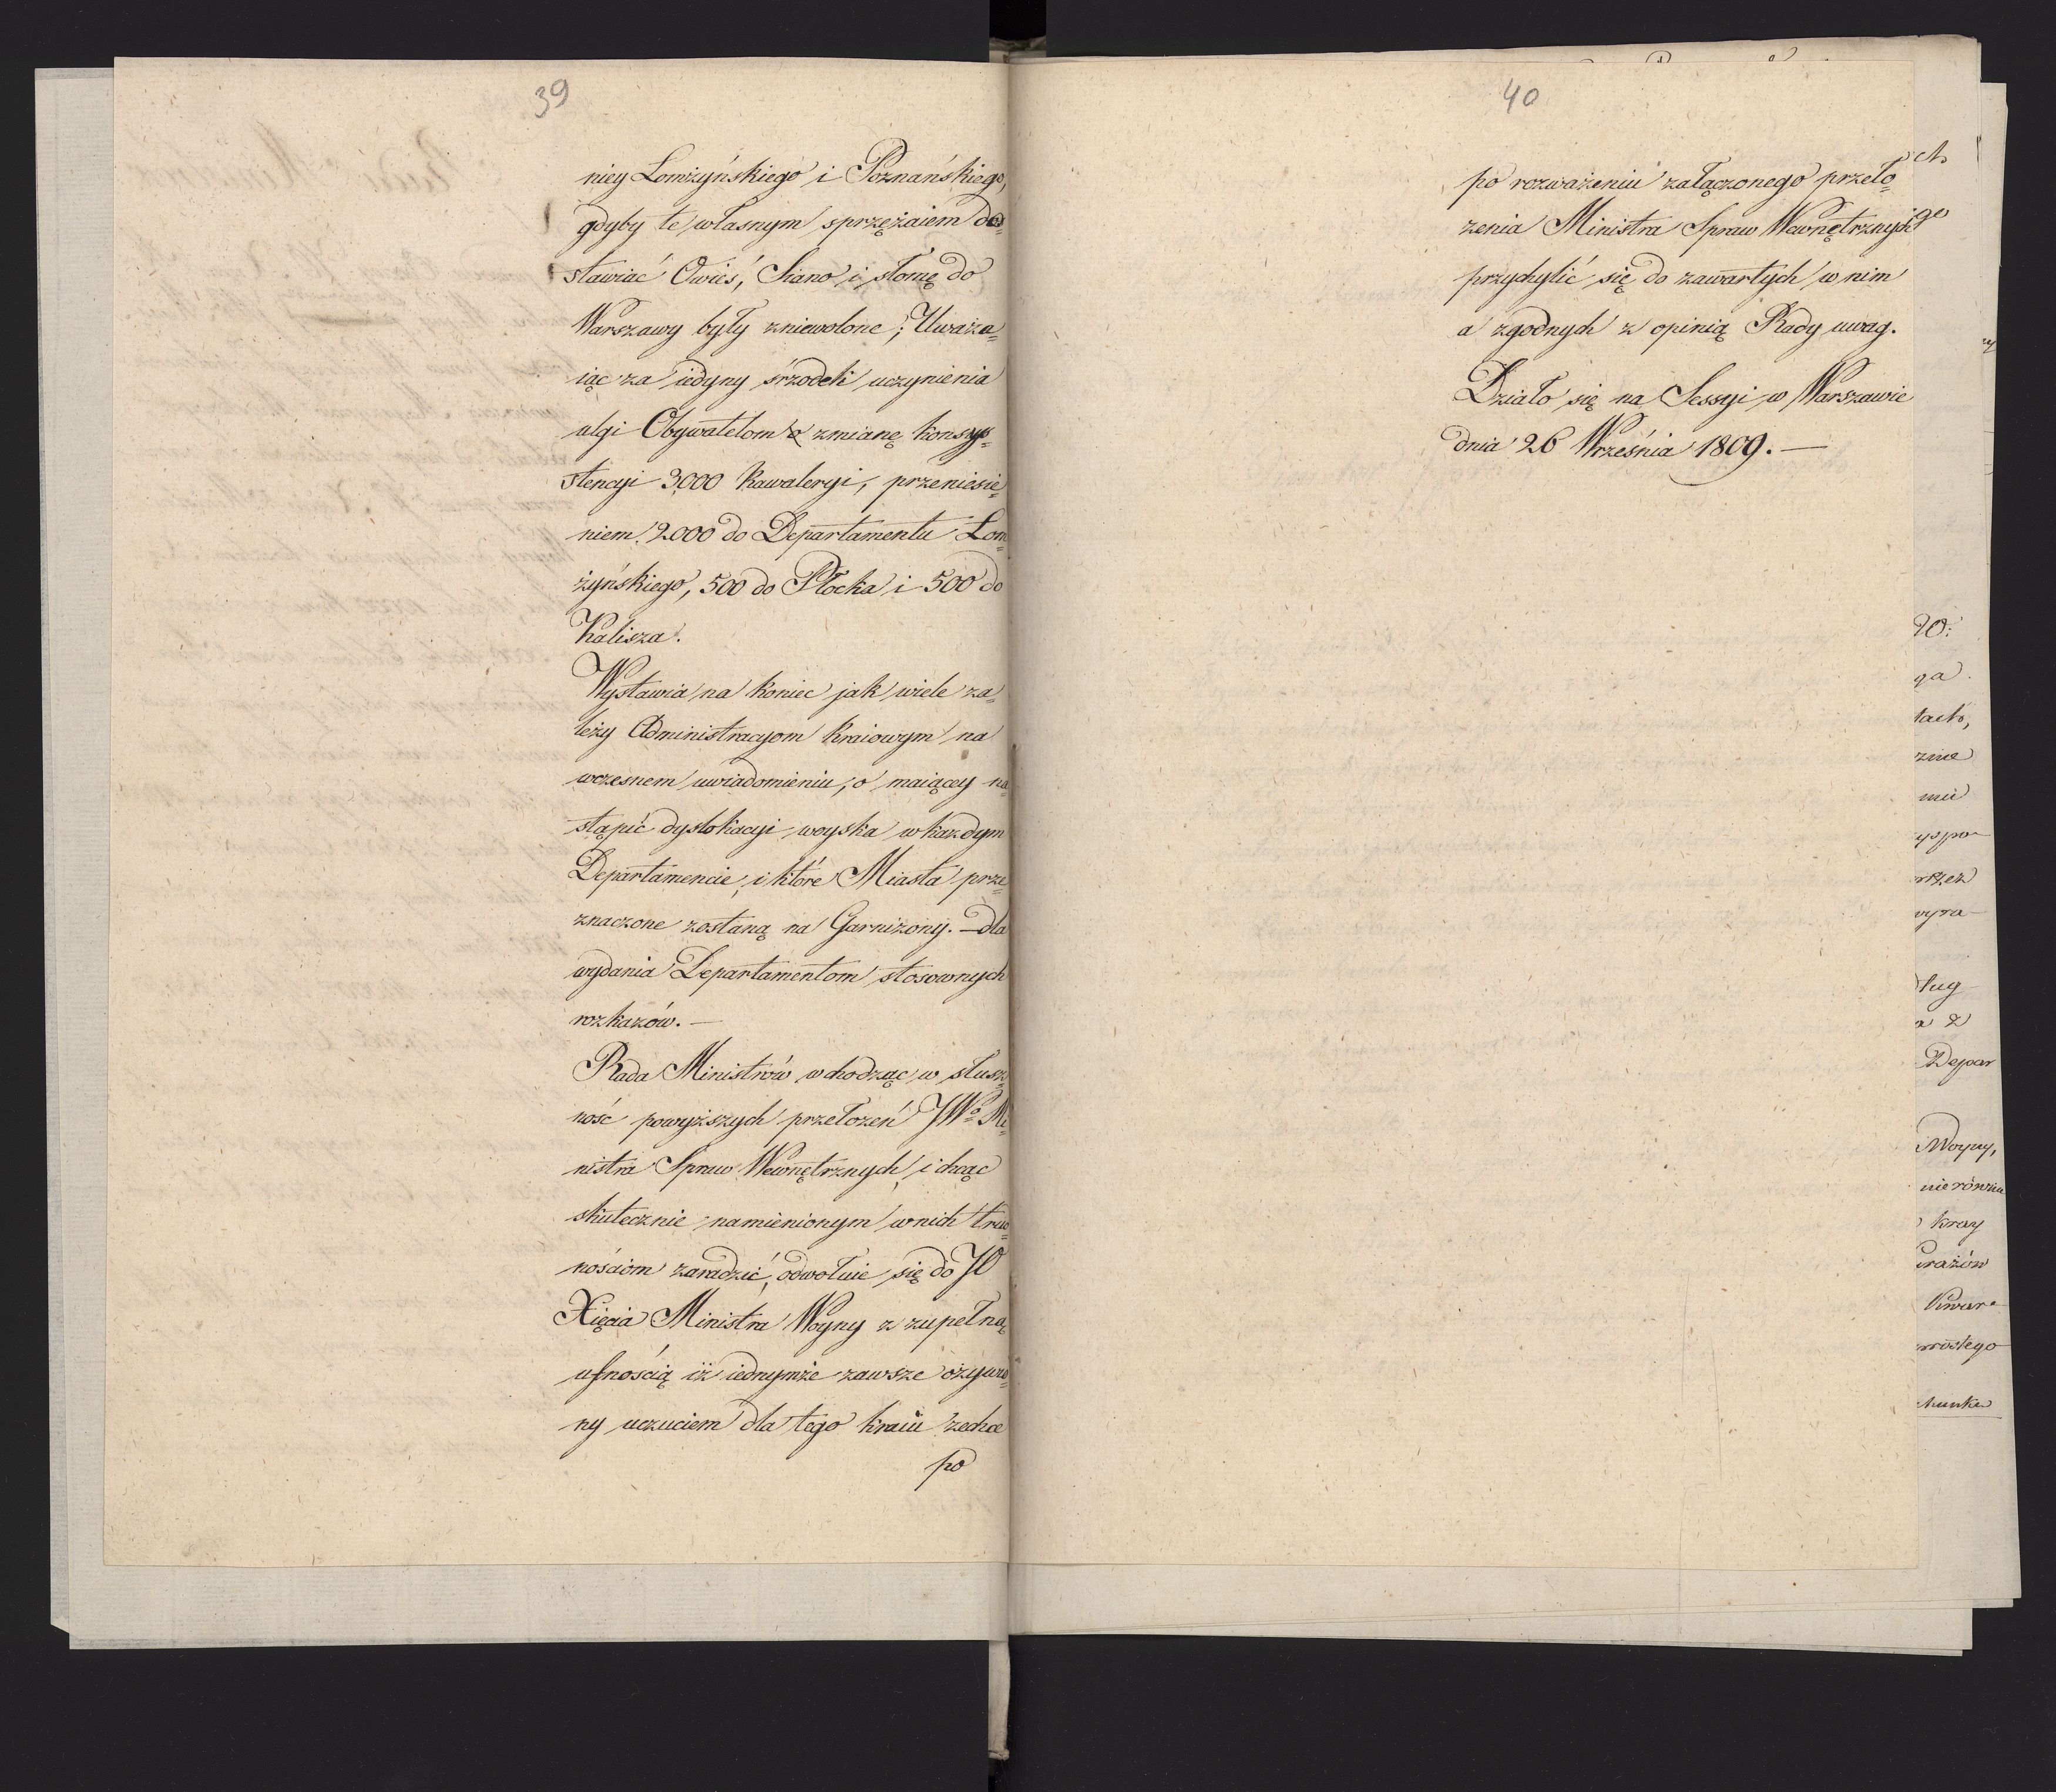 39
niey Lomżyńskiego i Poznańskiego,
gdyby te własnym sprzężaiem do=
stawiać Owies, Siano i słomę do
Warszawy były zniewolone; Uważa=
iąc za iedyny śrzodek uczynienia
ulgi Obywatelom zmianę konsys=
stencyi 3000 kawaleryi, przeniesie=
niem 2000 do Departamentu Łom=
żyńskiego, 500 do Płocka i 500 do
Kalisza.
Wystawia na koniec jak wiele za=
leży Administracyom kraiowym na
wczesnem uwiadomieniu, o maiącey na=
stąpić dyslokacyi woyska w każdym
Departamencie, i które Miasta prze=
znaczone zostaną na Garnizony. — dla
wydania Departamentom stosownych
rozkazów. —
Rada Ministrów wchodząc w słusz=
ność powyższych przełożeń JWo Mi=
nistra Spraw Wewnętrznych, i chcąc
skutecznie namienionym w nich trud=
nościom zaradzić, odwołuie się do JO
Xięcia Ministra Woyny z zupełną
ufnością iż iednymże zawsze ożywio=
ny uczuciem dla tego kraiu zechce
po
40
po rozważeniu załączonego przeło=
żenia Ministra Spraw Wewnętrznych
przychylić się do zawartych w nim
a zgodnych z opinią Rady uwag.
Działo się na Sessyi w Warszawie
dnia 26 Września 1809. —
ga
tach,
zne
mu
yspo
rzez
wyra
ług
a z
Depar
Woyny,
nierówna
kray
kwar
rosłego